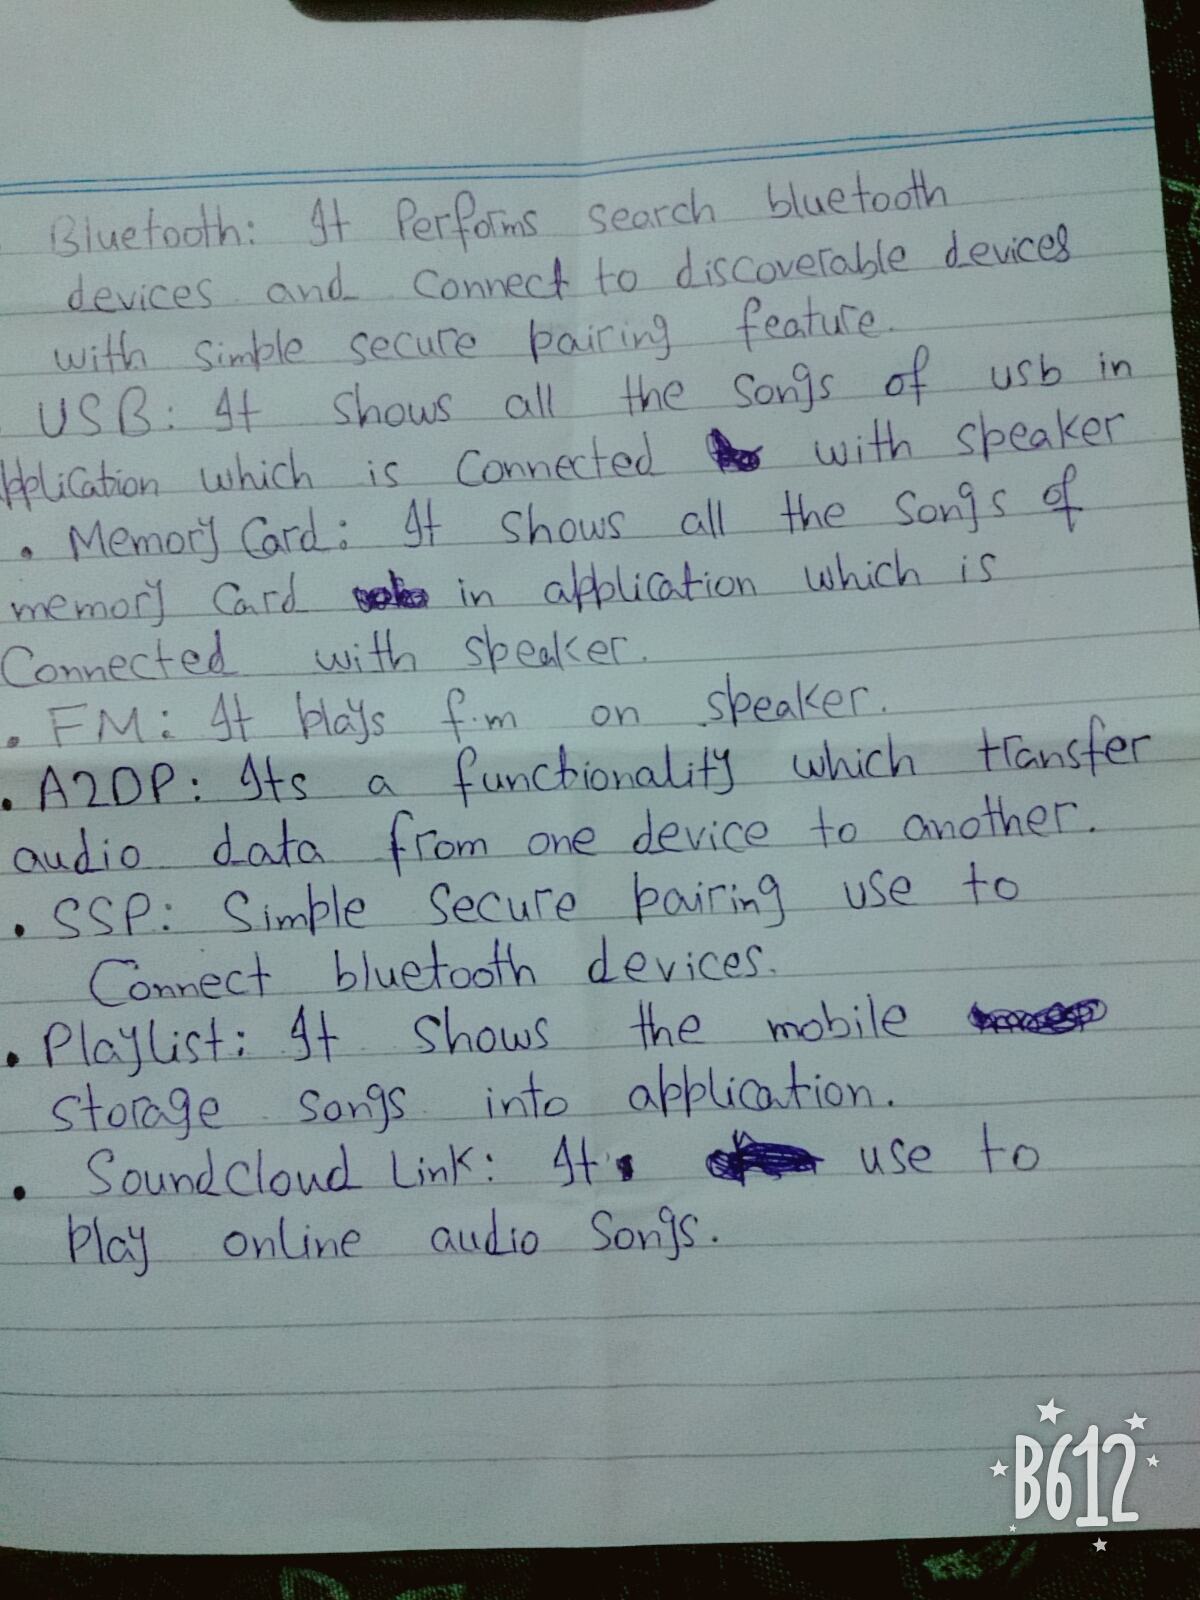 Bluetooth: It Performs search bluetooth
devices and Connect to discoverable devices
with simple secure pairing feature.
USB: It shows all the songs of usb in
pplication which is Connected with speaker
• Memory Card: It shows all the songs of
memory Card in application which is
Connected with speaker.
• FM: It plays f.m on speaker.
• A2DP: Its a functionality which transfer
audio data from one device to another.
• SSP: Simple secure pairing use to
Connect bluetooth devices.
• Playlist: It shows the mobile
storage songs into application.
• SoundCloud Link: It use to
play online audio songs.
B612